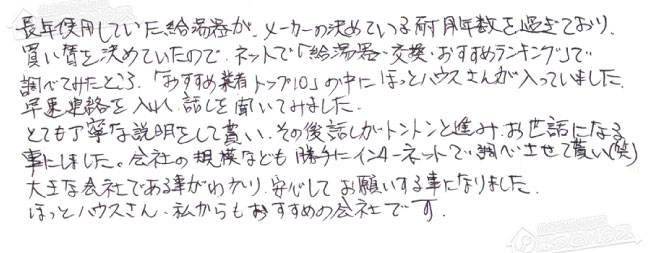 長年使用していた給湯器が、メーカーの決めている耐用年数を過ぎており、
買い替を決めていたので、ネットで「給湯器・交換・おすすめランキング」で
調べてみたところ、「おすすめ業者トップ10」の中にほっとハウスさんが入っていました。
早速連絡を入れ、話しを聞いてみました。
とても丁寧な説明をして貰い、その後話しがトントンと進み、お世話になる
事にしました。会社の規模なども勝手にインターネットで調べさせて貰い(笑)
大きな会社である事がわかり、安心してお願いする事になりました。
ほっとハウスさん、私からもおすすめの会社です。